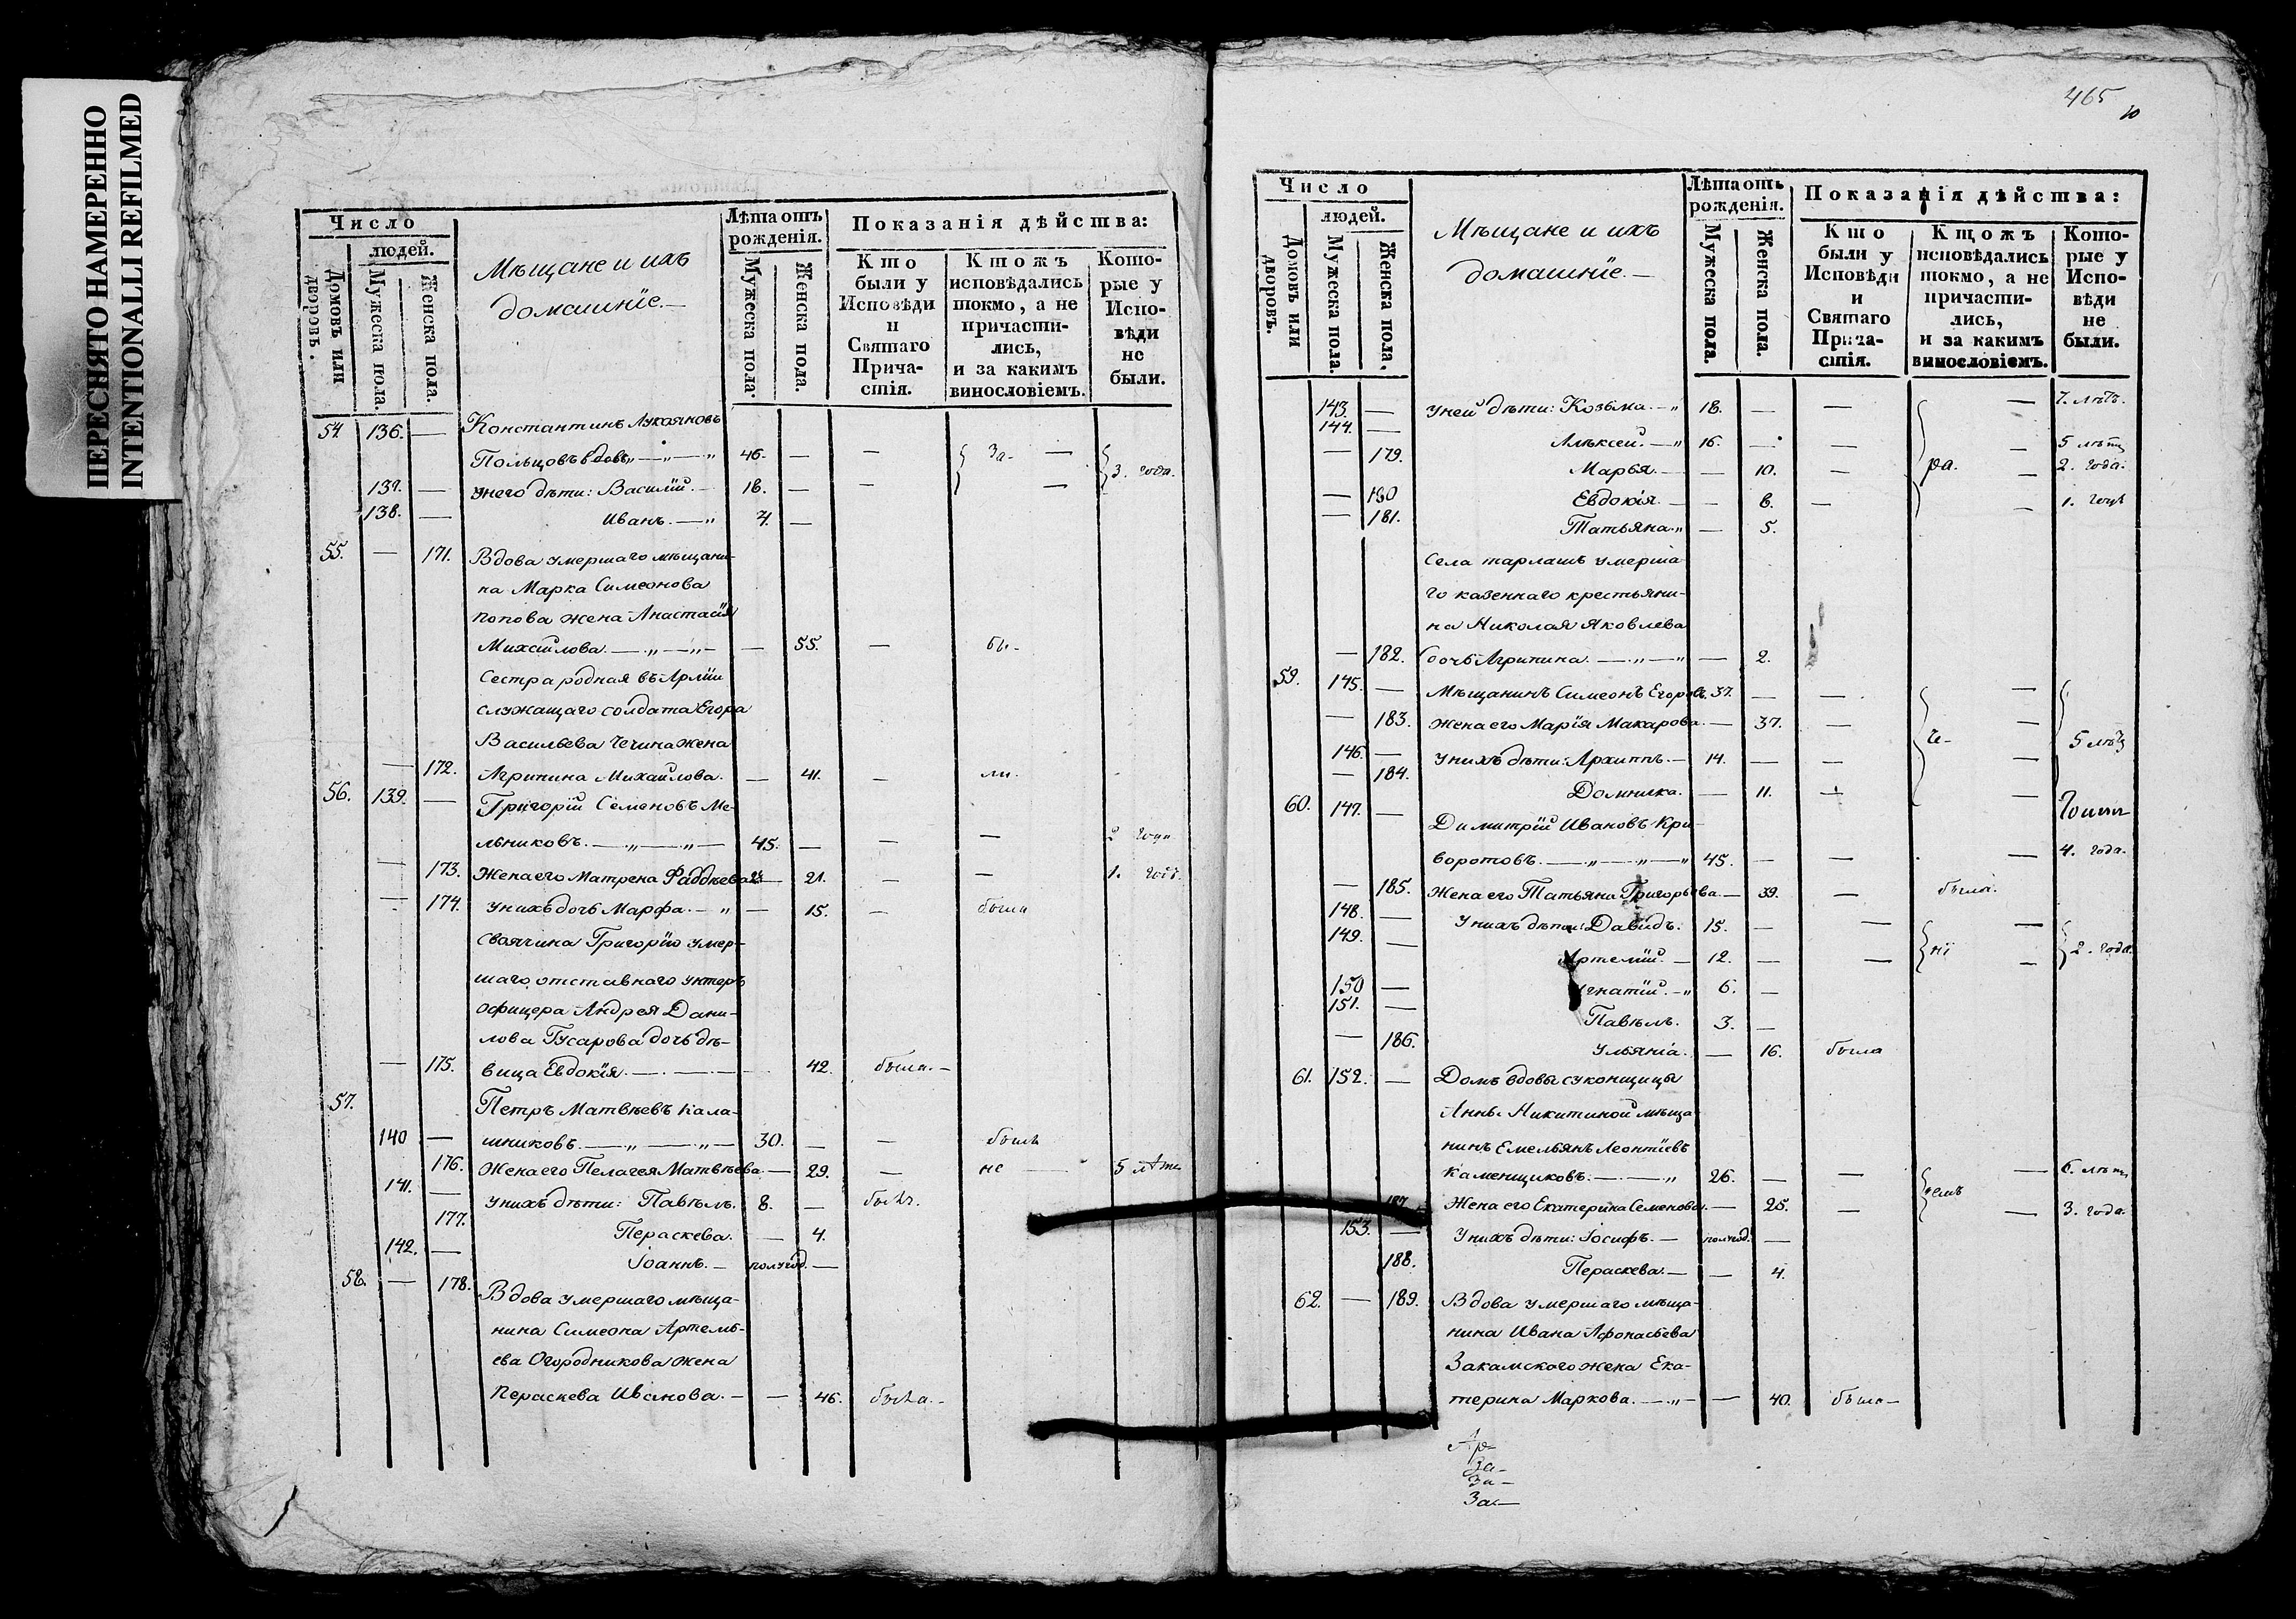 ПЕРЕСНЯТО НАМЕРЕННО
INTENTIONALLI REFILMED
Число
людей.
Домовъ или дворовъ.
Мужеска пола.
Женска пола.
Мѣщане и ихъ
домашнїе. —
Лѣта отъ
рожденія.
Мужеска пола.
Женска пола.
Показанія дѣйства:
Кто были у Исповѣди и Святаго Причастія.
Ктожъ исповѣдались токмо, а не причастились, и за какимъ винословіемъ.
Которые у Исповѣди не были.
54 136. — Константинъ Лукояновъ
Польцовъ вдовъ „ — „ — „ 46. — — За- — 3. года.
137. — Унего дѣти: Василїй. — 18. — — —
138. — Иванъ. — „ 7. —
55. — 171. Вдова умершаго мѣщани-
на Марка Симеонова
Попова жена Анастасїя
Михайлова. — „ — „ — — 55. — бы-
Сестра родная въ Армїи
служащаго солдата Егора
Васильева Чечина жена
— 172. Агрипина Михайлова. — 41. — ли.
56. 139. — Григорїй Семеновъ Ме-
льниковъ. — „ — „ — 45. — — — 2
— 173. Жена его Матрена Фаддѣева — 21. — — 1. годъ.
— 174. Унихъ дочь Марфа. — „ — 15. — была
Своячина Григорїю умер-
шаго отставнаго унтеръ
офицера Андрея Дани-
лова Гусарова дочь дѣ-
— 175. вица Евдокїя. — . — . — 42. была. —
57. Петръ Матвѣевъ Кала-
140 — шниковъ. — „ — „ — 30. — — былъ
176. Жена его Пелагея Матвѣева. — 29. — не — 5 лѣтъ
141. — Унихъ дѣти: Павѣлъ. 8. — былъ.
177. Параскева. — 4.
142. — Іоаннъ. — полгод. —
58. — 178. Вдова умершаго мѣща-
нина Симеона Артемь-
ева Огородникова жена
Пераскева Иванова. — — 46. была. —
465
10
Число
людей.
Домовъ или дворовъ.
Мужеска пола.
Женска пола.
Мѣщане и ихъ
домашнїе. —
Лѣта отъ
рожденія.
Мужеска пола.
Женска пола.
Показанія дѣйства:
Кто были у Исповѣди и Святаго Причастія.
Ктожъ исповѣдались токмо, а не причастились, и за какимъ винословіемъ.
Которые у Исповѣди не были.
143. — Уней дѣти: Козьма. — „ 18. — — — 7. лѣтъ.
144. — Алѣксей. — „ 16. — — 5 лѣтъ
— 179. Марья. — — 10. — ра. — 2. года.
— 180 Евдокїя. — — 8. — — 1. годъ
— 181. Татьяна. „ — 5.
Села тарлашъ умерша-
го казеннаго крестьяни-
на Николая Яковлева
— 182. дочь Агрипина. — „ — „ — 2.
59. 145. — Мѣщанинъ Симеонъ Егоровъ. 37. — — —
— 183. Жена его Марїя Макарова. — 37. — —
146. — Унихъ дѣти: Архиппъ. — 14. — — — 5 лѣтъ
— 184. Домника. — 11. — —
60. 147. — Димитрїй Ивановъ Кри-
воротовъ. — „ — „ — „ 45. — — — 4. года.
— 185. Жена его Татьяна Григорьева — 39. — была.
148. — Унихъ дѣти: Давидъ. 15. — — —
149. — Артемїй. — 12. — — нї — 2. года.
150 — Игнатїй. — „ 6. —
151. — Павѣлъ. 3. —
— 186. Ульянїа. — 16. была
61. 152. — Домъ вдовы суконщицы
Анны Никитиной мѣща-
нинъ Емельянъ Леонтїевъ
Каменщиковъ. — . — „ 26. — — — 6. лѣтъ
187 Жена его Екатерина Семенова. — 25. — — 3. года.
153. — Унихъ дѣти: Іосифъ. — полгод. —
188. Пераскева. — — 4.
62. — 189. Вдова умершаго мѣща-
нина Ивана Афонасьева
Закамскаго жена Ека-
терина Маркова. — „ — — 40. была —
Ар-
За-
За-
За. —